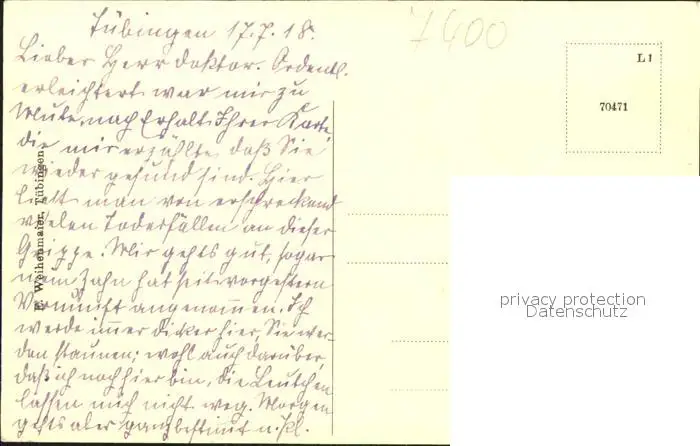 Tübingen 17.7.18.
Lieber Herr Doktor. Ordentl.
erleichtert war mir zu
Mute, nach Erhalt Ihrer Karte,
die mir erzählte, daß Sie
wieder gesund sind. Hier
hört man von erschreckend
vielen Todesfällen an dieser
Grippe. Mir gehts gut, sogar
mein Zahn hat seit vorgestern
Vernunft angenommen. Ich
werde immer dicker hier, Sie wer-
den staunen; wohl auch darüber,
daß ich noch hier bin, die Leutchen
lassen mich nicht weg. Morgen
gehts aber ganz bestimmt n. Kl.
7400
L1
70471
E. Weihenmaier, Tübingen
privacy protection
Datenschutz